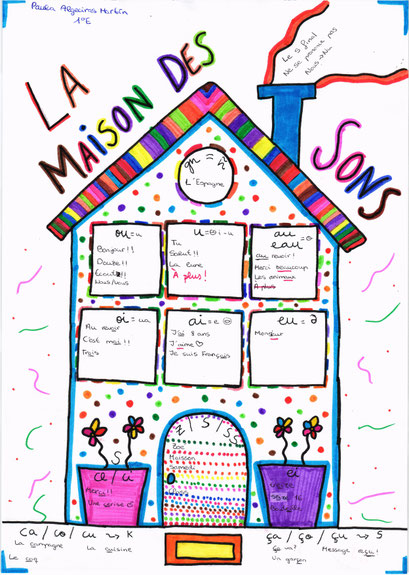 Paula Algeciras Martín
1ºE
LA
MAISON DES
SONS
Le s final
Ne se prononce pas
gn = ñ
L'Espagne
ou = u
Bonjour!!
Écoute!!
Nous/Vous
u = i-u
Tu
Salut!!
La lune
À plus!
au
eau = o
Au revoir!
Merci beaucoup
Les animaux
À plus
oi = ua
Au revoir
C'est moi!!
Trois
ai = e
J'ai 8 ans
J'aime
Je suis français
eu = ə
Monsieur
z / S / SS
Zoé
Maison
Samedi
S
ce / ci
Merci!!
Une cerise
ei
ca / co / cu → K
La campagne
La cuisine
Le coq
ça / ço / çu → S
Ça va?
Message reçu!
Un garçon